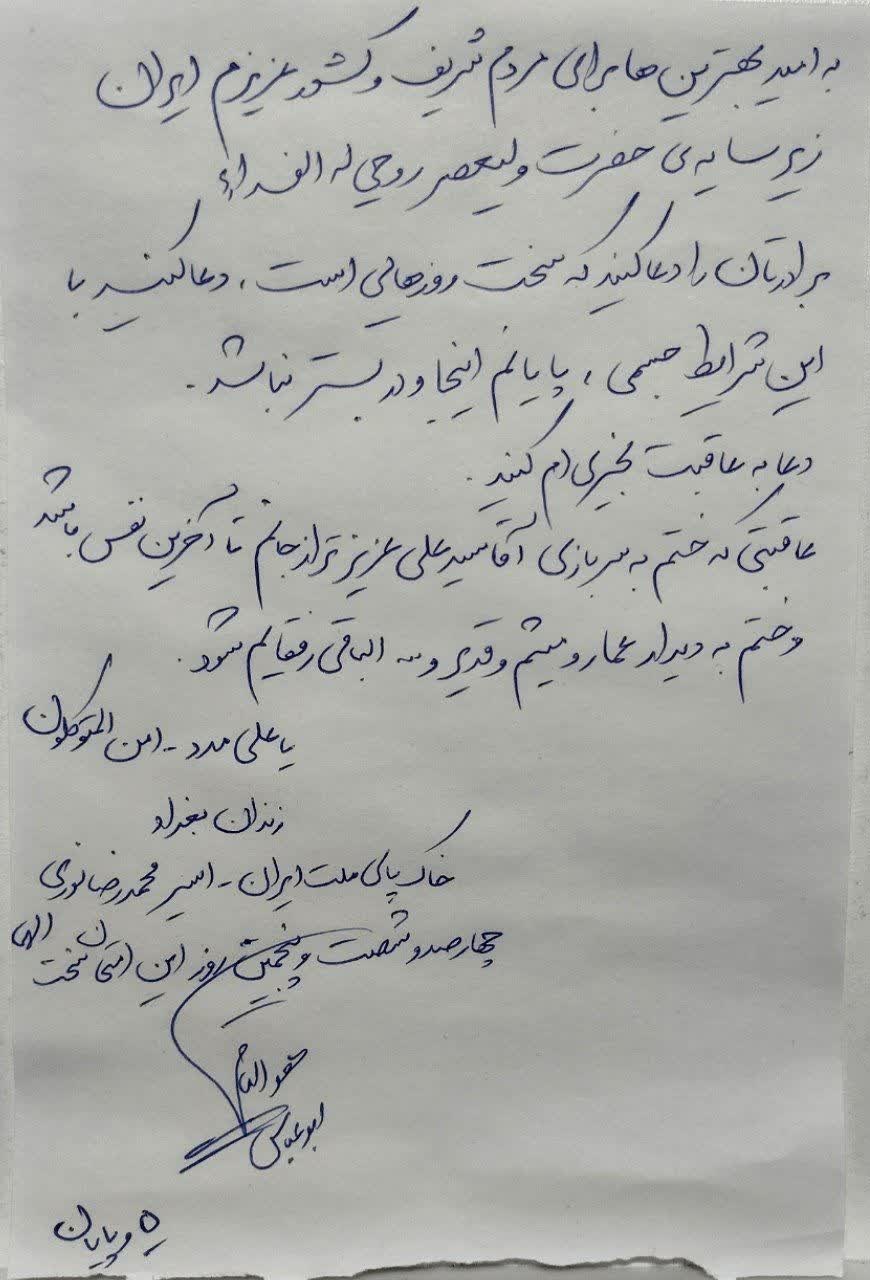 به امید بهترین ها برای مردم شریف و کشور عزیزم ایران
زیر سایه ی حضرت ولیعصر روحی له الفداء
برادرتان را دعا کنید که سخت روزهایی است، دعا کنید با
این شرایط جسمی، پایانم اینجا و در بستر نباشد.
دعا به عاقبت بخیری ام کنید.
عاقبتی که ختم به سربازی آقا سید علی عزیزتر از جانم تا آخرین نفس باشد
و ختم به دیدار عمار و میثم و قدیر و الباقی رفقایم شود.
یا علی مدد - امن المتوکلون
زندان بغداد
خاک پای ملت ایران - اسیر محمدرضا نوری
چهارصد و شصت و پنجمین روز این امتحان سخت الهی
ابوعباس
۵ و پایان